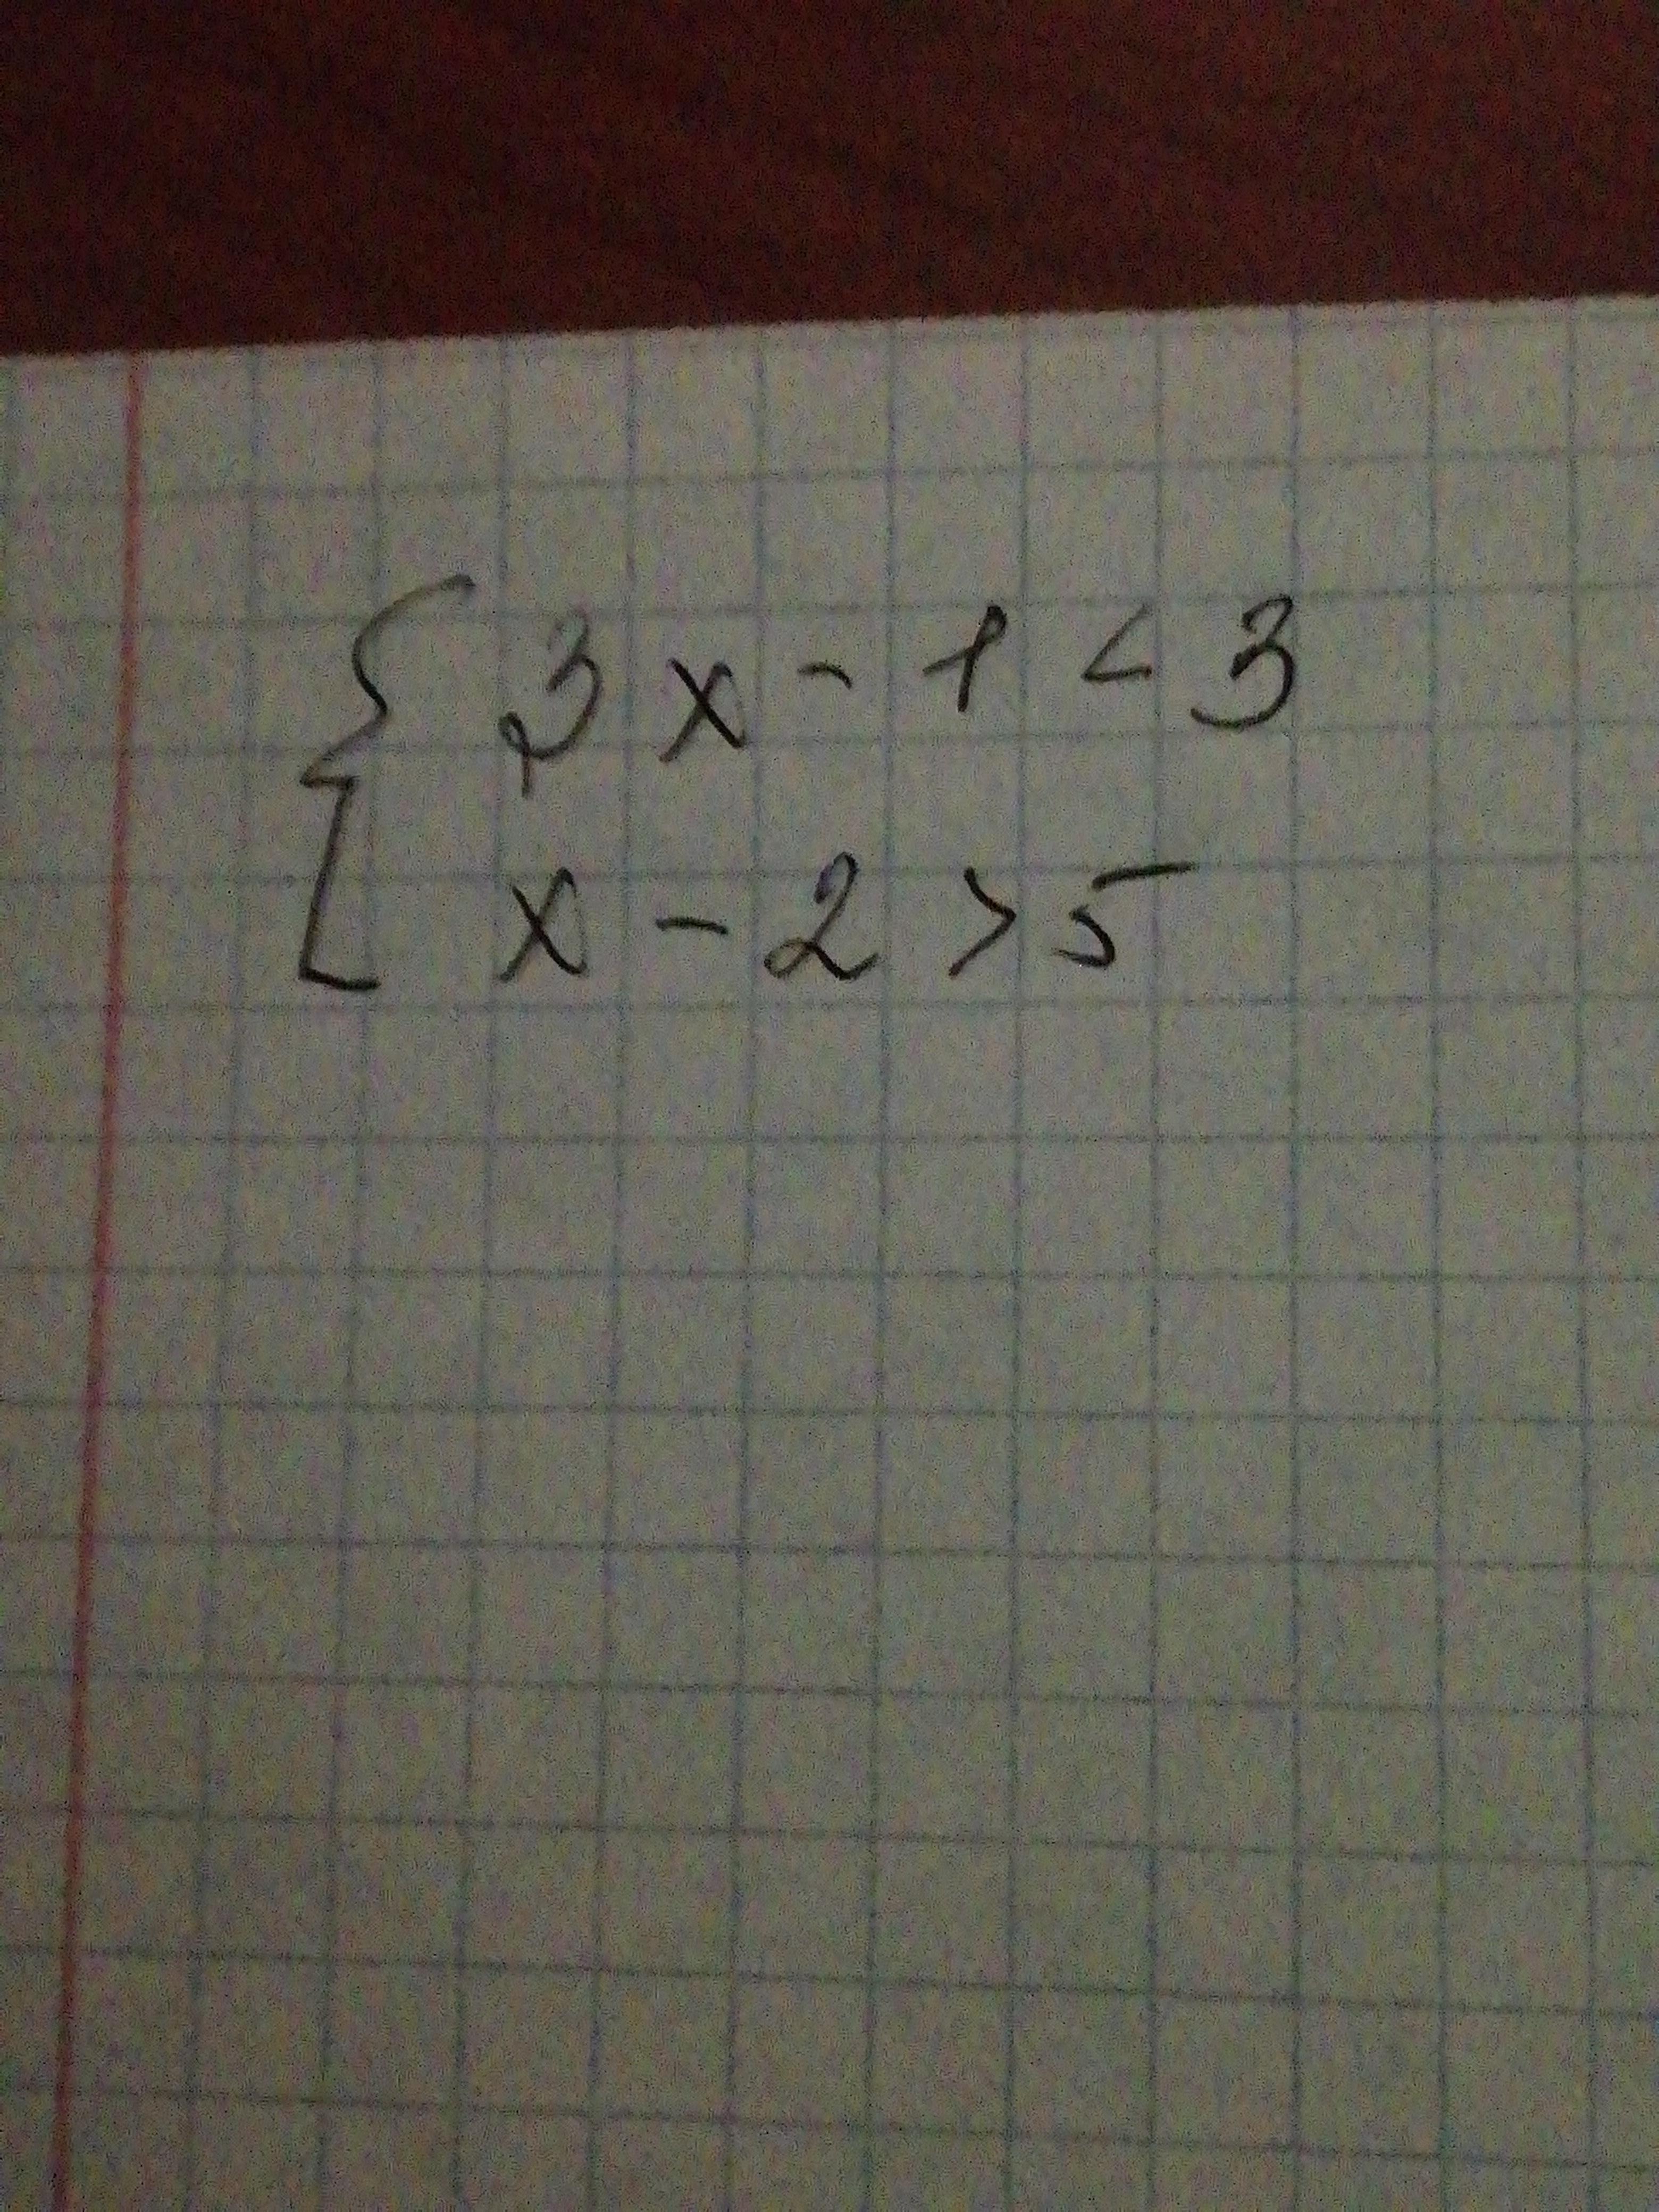 { 3x - 1 < 3
x - 2 > 5